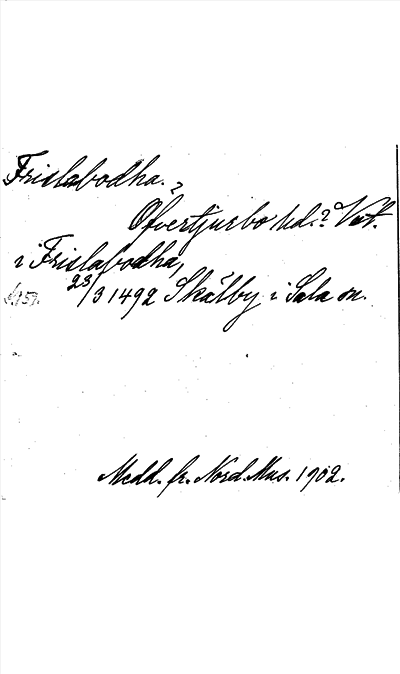 Frislabodha. ?
Öfvertjurbo hd.? Vstm.
i Frislabodha,
23/3 1492 Skålby i Sala sn.
Medd. fr. Nord. Mus. 1902.